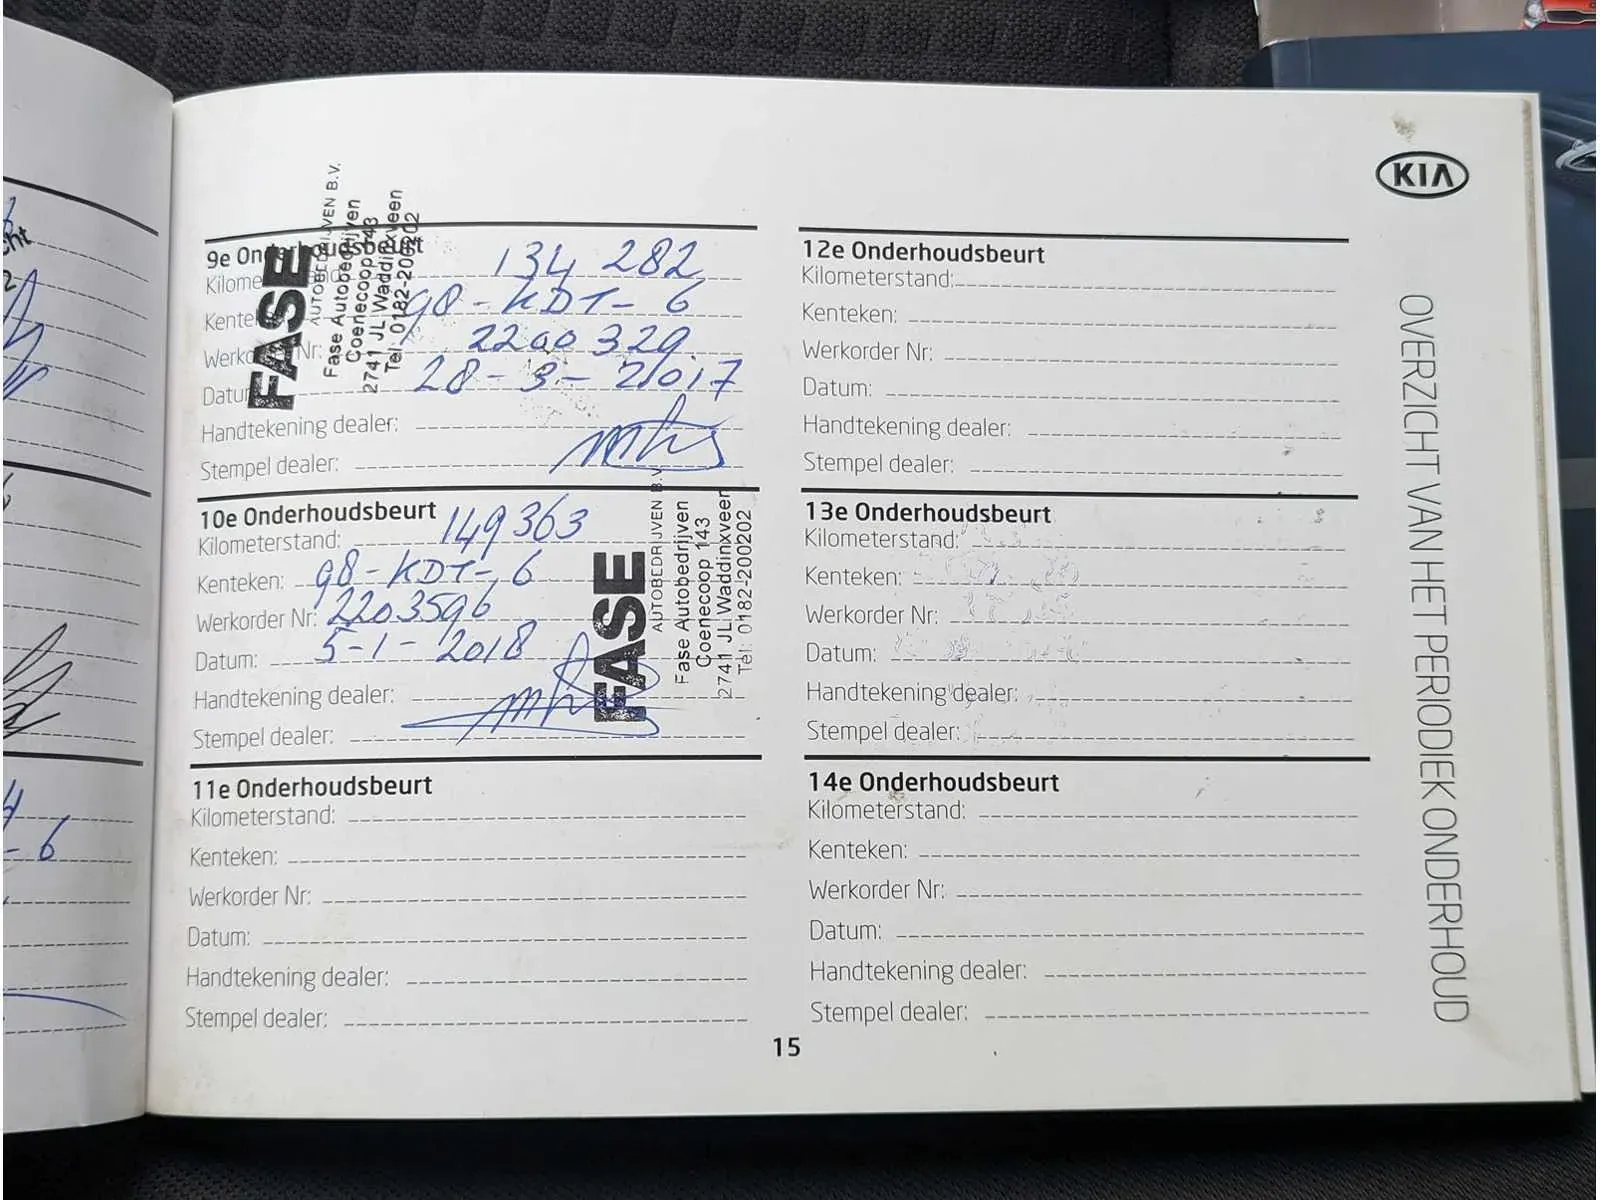 KIA
OVERZICHT VAN HET PERIODIEK ONDERHOUD
9e Onderhoudsbeurt
Kilometerstand: 134 282
Kenteken: 98-KDT-6
Werkorder Nr: 2200329
Datum: 28-3-2017
Handtekening dealer:
Stempel dealer:
FASE
AUTOBEDRIJVEN B.V.
Fase Autobedrijven
Coenecoop 143
2741 JL Waddinxveen
Tel: 0182-200202
10e Onderhoudsbeurt
Kilometerstand: 149363
Kenteken: 98-KDT-6
Werkorder Nr: 2203596
Datum: 5-1-2018
Handtekening dealer:
Stempel dealer:
FASE
AUTOBEDRIJVEN B.V.
Fase Autobedrijven
Coenecoop 143
2741 JL Waddinxveen
Tel: 0182-200202
11e Onderhoudsbeurt
Kilometerstand:
Kenteken:
Werkorder Nr:
Datum:
Handtekening dealer:
Stempel dealer:
12e Onderhoudsbeurt
Kilometerstand:
Kenteken:
Werkorder Nr:
Datum:
Handtekening dealer:
Stempel dealer:
13e Onderhoudsbeurt
Kilometerstand:
Kenteken:
Werkorder Nr:
Datum:
Handtekening dealer:
Stempel dealer:
14e Onderhoudsbeurt
Kilometerstand:
Kenteken:
Werkorder Nr:
Datum:
Handtekening dealer:
Stempel dealer:
15